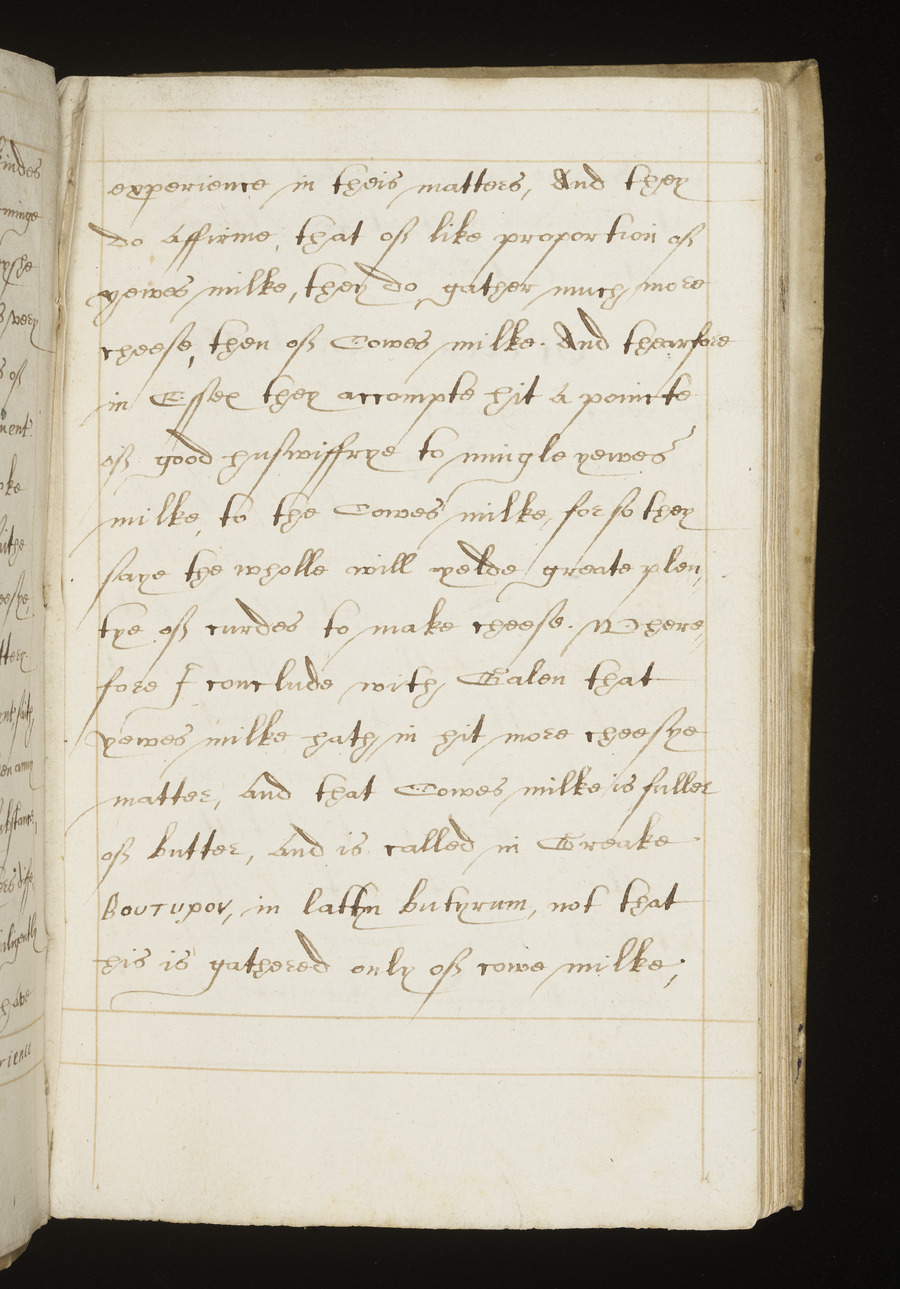 experience in theis matters, And they
do affirme, that of like proportion of
yewes milke, they do gather much more
cheese, then of Cowes milke. And thearfore
in Essex they accompte hit a poincte
of good huswiffrye to mingle yewes
milke, to the Cowes milke, for so they
saye the wholle will yelde greate plen,
tye of curdes to make cheese. Where,
fore I conclude with Galen that
yewes milke hath in hit more cheesye
matter, And that Cowes milke is fuller
of butter, And is called in Greake
Βουτυρον, in lattyn butyrum, not that
this is gathered only of cowe milke;